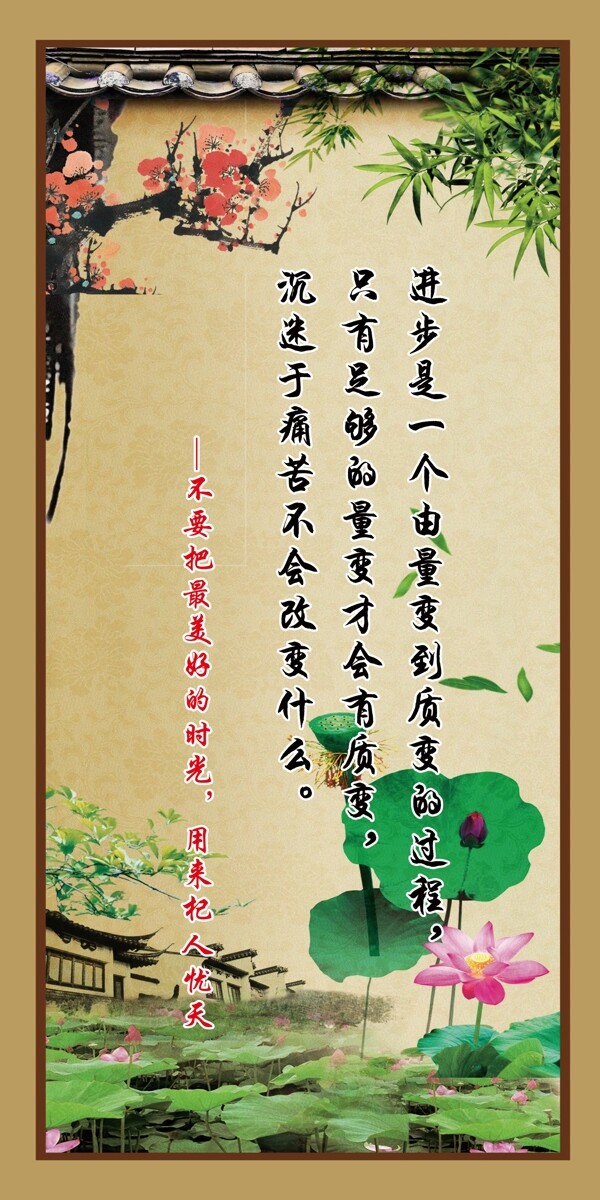 进步是一个由量变到质变的过程，
只有足够的量变才会有质变，
沉迷于痛苦不会改变什么。
—不要把最美好的时光，用来杞人忧天